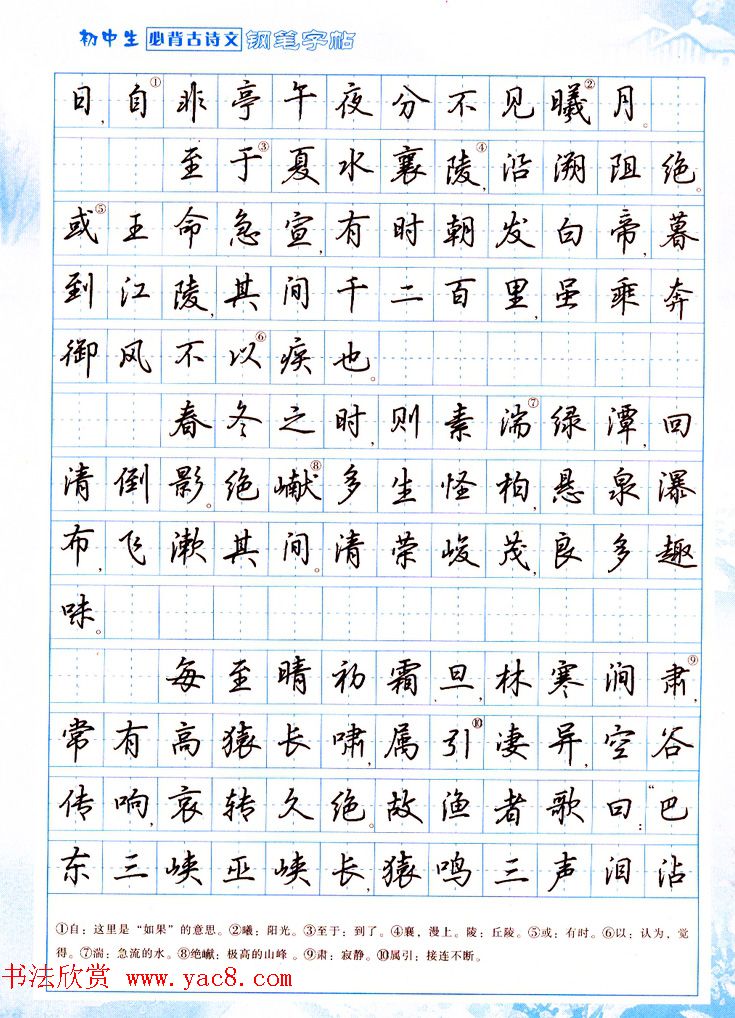 初中生 必背古诗文 钢笔字帖
日,自①非亭午夜分不见曦②月。
至于③夏水襄陵④,沿溯阻绝。
或⑤王命急宣,有时朝发白帝,暮
到江陵,其间千二百里,虽乘奔
御风不以⑥疾也。
春冬之时,则素湍⑦绿潭,回
清倒影。绝巘⑧多生怪柏,悬泉瀑
布,飞漱其间。清荣峻茂,良多趣
味。
每至晴初霜旦,林寒涧肃⑨,
常有高猿长啸,属引⑩凄异,空谷
传响,哀转久绝。故渔者歌曰:“巴
东三峡巫峡长,猿鸣三声泪沾
①自:这里是“如果”的意思。②曦:阳光。③至于:到了。④襄,漫上。陵:丘陵。⑤或:有时。⑥以:认为,觉
得。⑦湍:急流的水。⑧绝巘:极高的山峰。⑨肃:寂静。⑩属引:接连不断。
书法欣赏 www.yac8.com